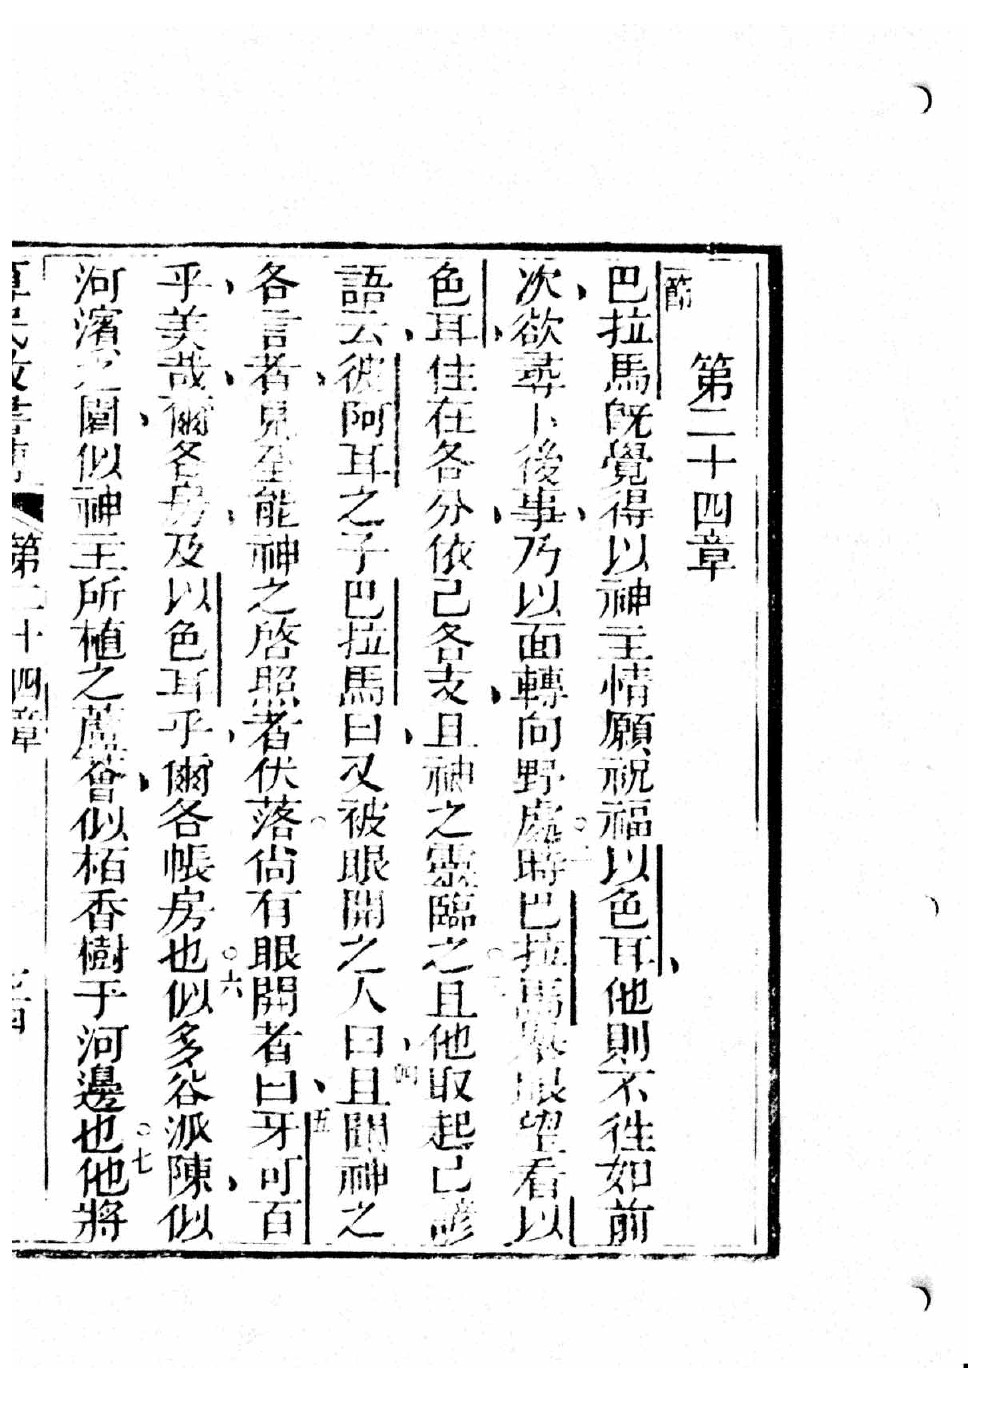 第二十四章
節
巴拉馬既覺得以神主情願祝福以色耳、他則不徃如前
次、欲尋卜後事、乃以面轉向野處○二時巴拉馬舉眼望看以
色耳、住在各分、依己各支、且神之靈臨之○三且他取起己諺
語云、彼阿耳之子巴拉馬曰、又被眼開之人曰、四且聞神之
各言者、見全能神之啓照者伏落○尚有眼開者曰、五牙可百
乎、美哉、爾各房、及以色耳乎、爾各帳房也○六似多谷派陳、似
河濱之園、似神主所植之蘆薈、似栢香樹于河邊也○七他將
第二十四章